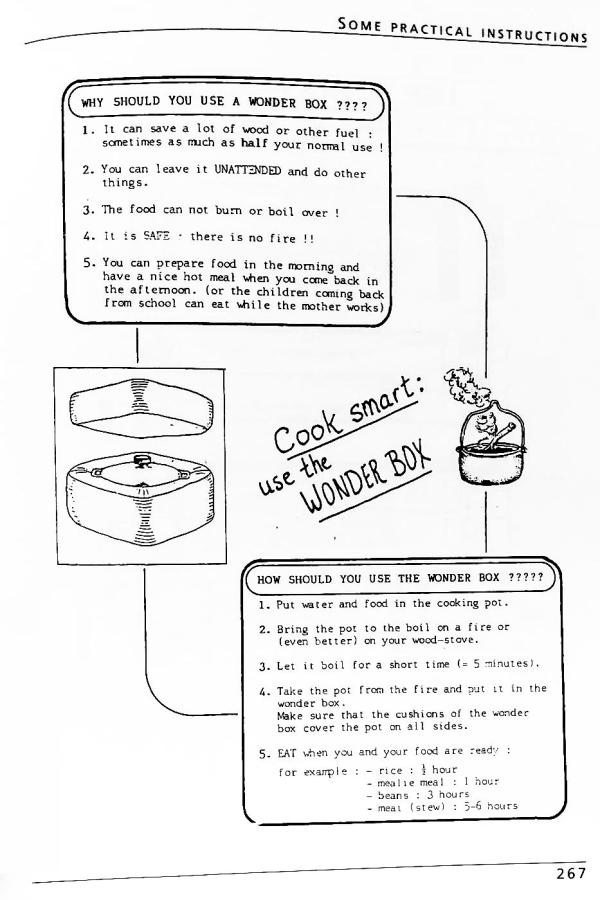 SOME PRACTICAL INSTRUCTIONS
WHY SHOULD YOU USE A WONDER BOX ????
1. It can save a lot of wood or other fuel :
sometimes as much as half your normal use !
2. You can leave it UNATTENDED and do other
things.
3. The food can not burn or boil over !
4. It is SAFE - there is no fire !!
5. You can prepare food in the morning and
have a nice hot meal when you come back in
the afternoon. (or the children coming back
from school can eat while the mother works)
Cook smart:
use the
WONDER BOX
HOW SHOULD YOU USE THE WONDER BOX ?????
1. Put water and food in the cooking pot.
2. Bring the pot to the boil on a fire or
(even better) on your wood-stove.
3. Let it boil for a short time (= 5 minutes).
4. Take the pot from the fire and put it in the
wonder box.
Make sure that the cushions of the wonder
box cover the pot on all sides.
5. EAT when you and your food are ready :
for example : - rice : ½ hour
- mealie meal : 1 hour
- beans : 3 hours
- meat (stew) : 5-6 hours
267